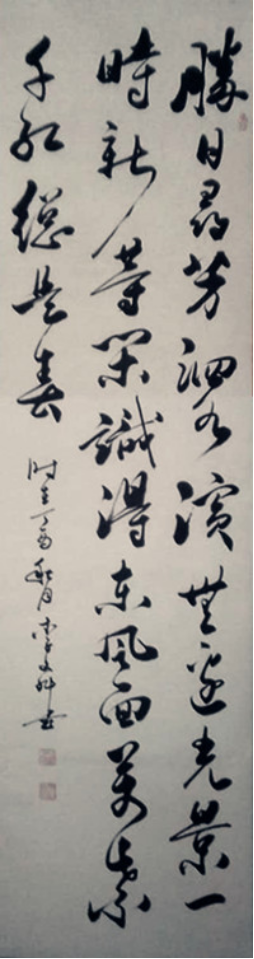 勝日尋芳泗水濱無邊光景一
時新等閑識得東風面萬紫
千紅總是春
时在丁酉秋月李